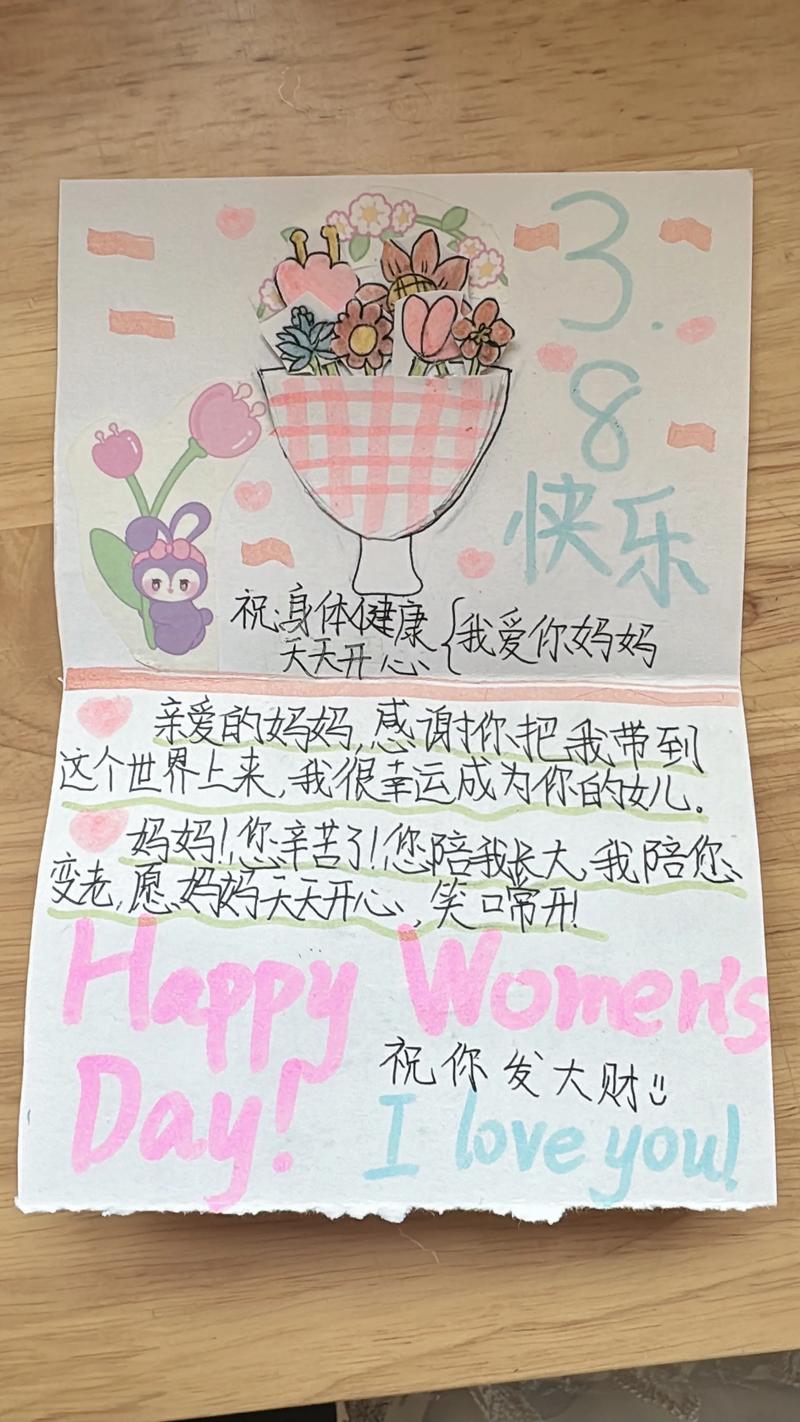 3.
8
快乐
祝:身体健康
天天开心{我爱你妈妈
亲爱的妈妈,感谢你把我带到
这个世界上来,我很幸运成为你的女儿.
妈妈!您辛苦了!您陪我长大,我陪您
变老,愿妈妈天天开心,笑口常开!
Happy Women's
Day!
祝你发大财
I love you!